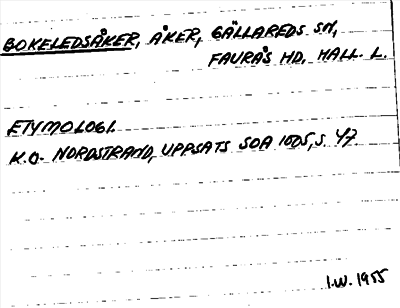 BOKELEDSÅKER, ÅKER, GÄLLAREDS SN,
FAURÅS HD, HALL. L.
ETYMOLOGI.
K.O. NORDSTRAND, UPPSATS SOA 1005, S. 47.
I.W. 1955